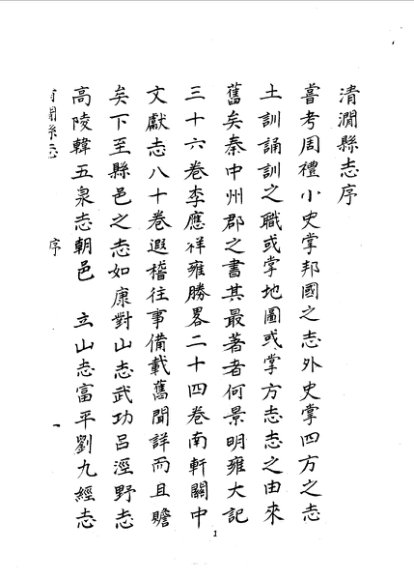 清澗縣志序
嘗考周禮小史掌邦國之志外史掌四方之志
土訓誦訓之職或掌地圖或掌方志志之由來
舊矣秦中州郡之書其最著者何景明雍大記
三十六卷李應祥雍勝畧二十四卷南軒關中
文獻志八十卷遐稽往事備載舊聞詳而且贍
矣下至縣邑之志如康對山志武功呂涇野志
高陵韓五泉志朝邑 立山志富平劉九經志
縣志 序 一
1